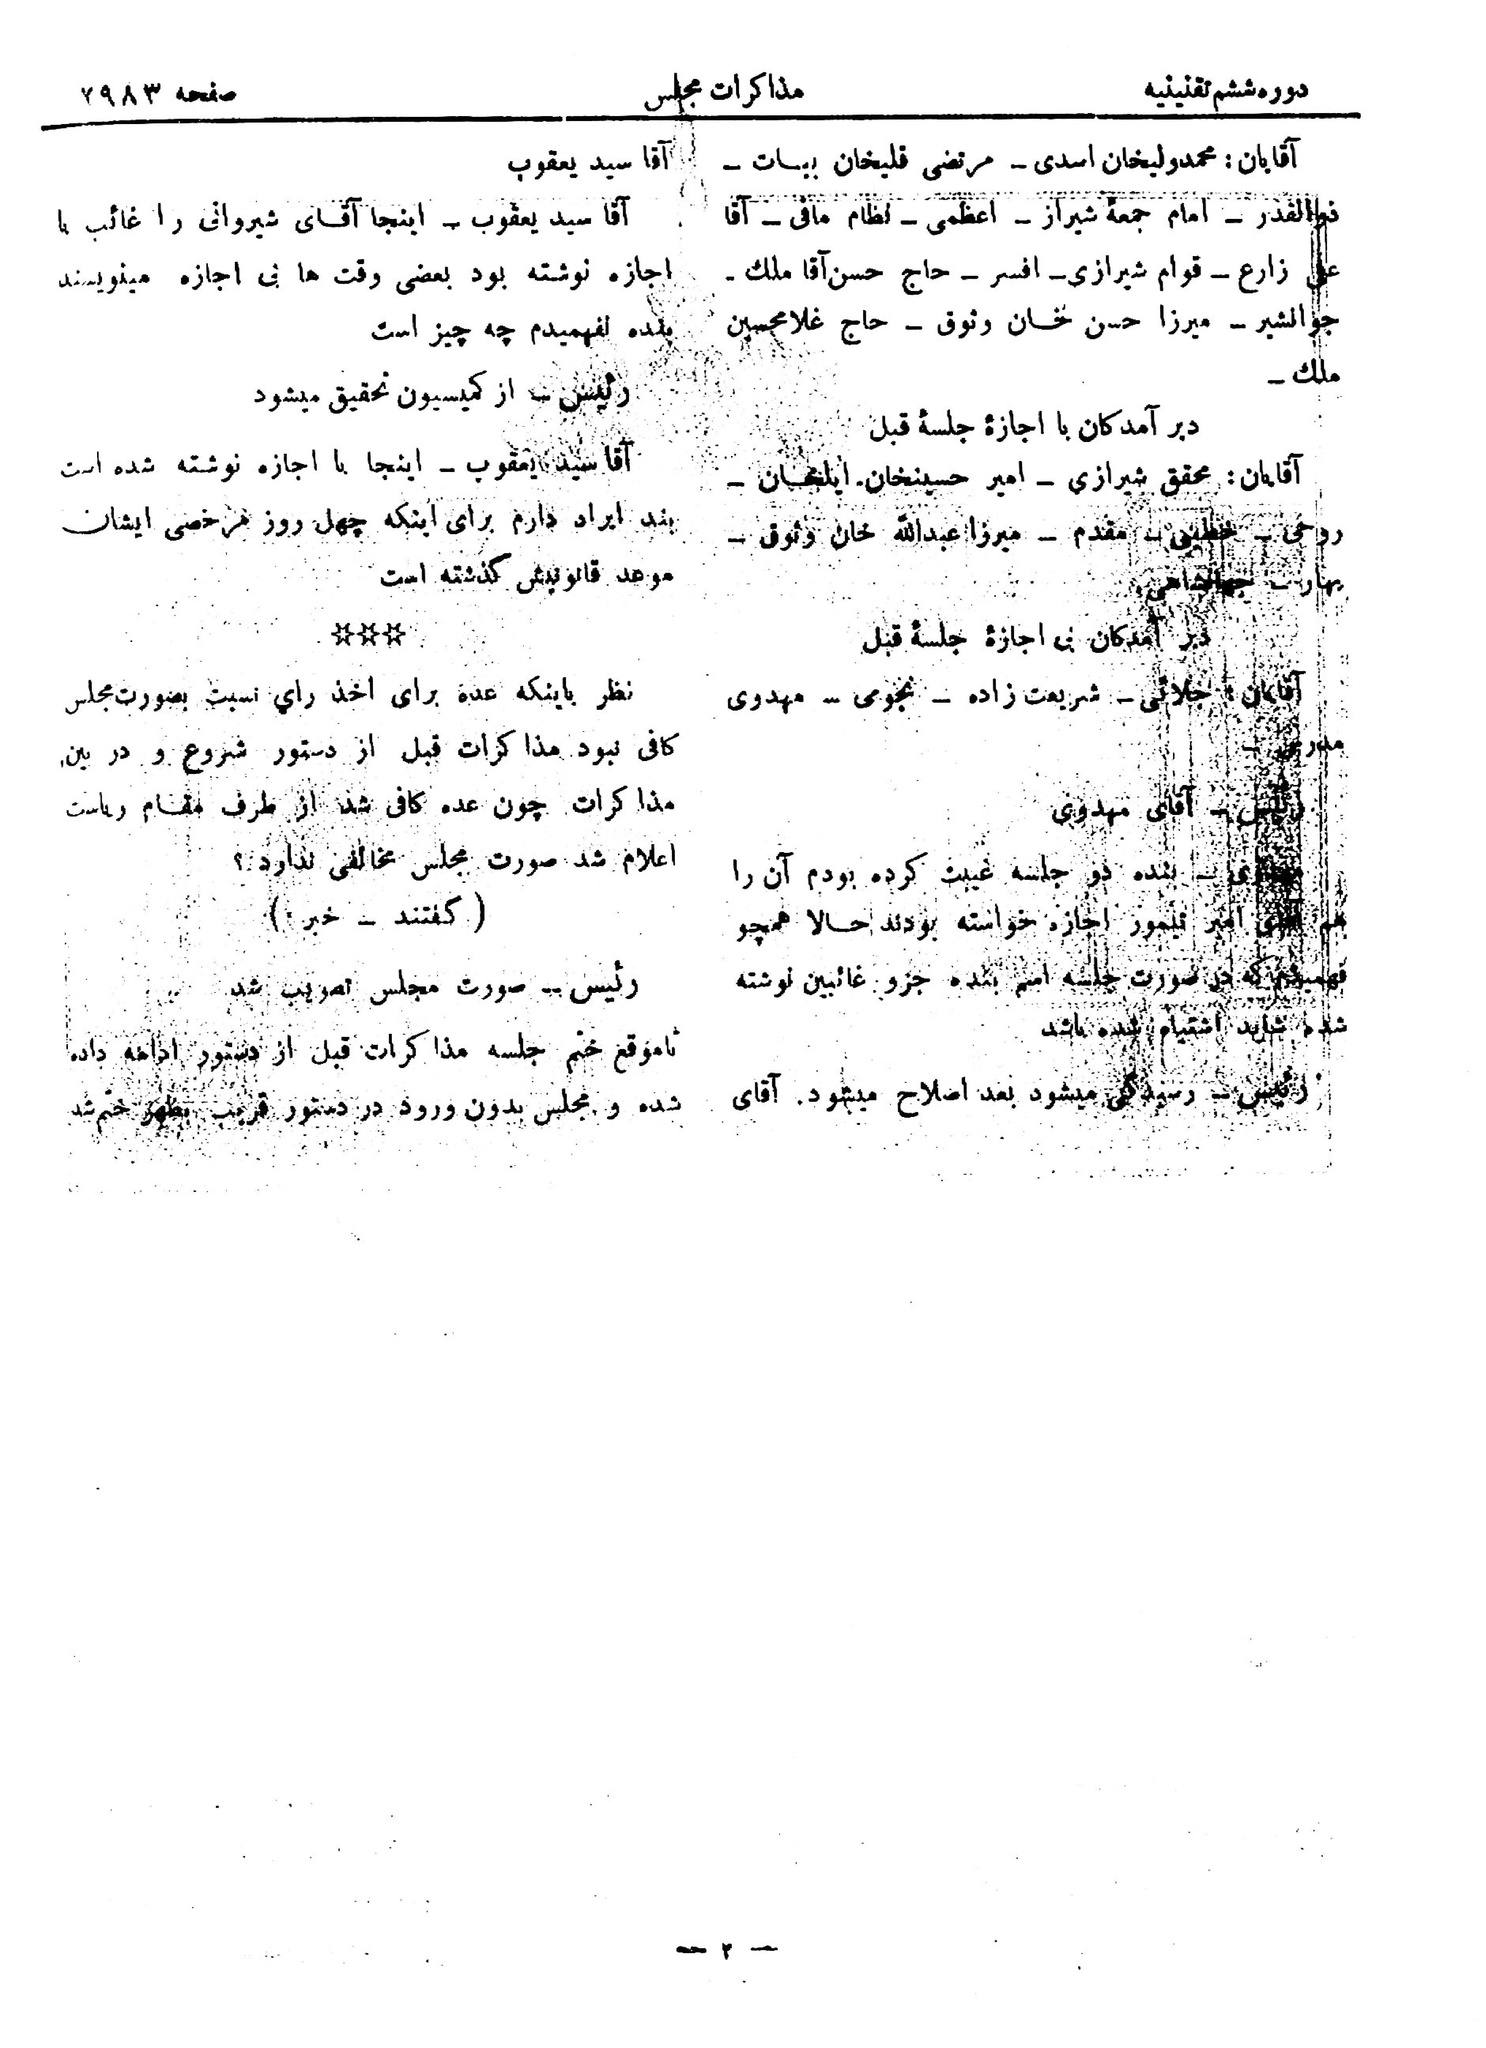 دوره ششم تقنینیه
مذاکرات مجلس
صفحه ۲۹۸۳
آقایان: محمدولیخان اسدی ـ مرتضی قلیخان بیات ـ
ذوالقدر ـ امام جمعهٔ شیراز ـ اعظمی ـ نظام مافی ـ آقا
علی زارع ـ قوام شیرازی ـ افسر ـ حاج حسن آقا ملك ـ
جوانشیر ـ میرزا حسن خان وثوق ـ حاج غلامحسین
ملك ـ
دیر آمدگان با اجازهٔ جلسهٔ قبل
آقایان: محقق شیرازي ـ امیر حسینخان ایلخان ـ
روحی ـ خطیبی ـ مقدم ـ میرزا عبدالله خان وثوق ـ
بهار ـ جهانشاهی
دیر آمدگان بی اجازهٔ جلسهٔ قبل
آقایان: جلائی ـ شریعت زاده ـ نجومی ـ مهدوی
مدرس ـ
رئیس ـ آقای مهدوي
مهدوی ـ بنده دو جلسه غیبت کرده بودم آن را
هم آقای امیر تیمور اجازه خواسته بودند حالا همچو
فهمیدم که در صورت جلسه اسم بنده جزو غائبین نوشته
شده شاید اشتباه شده باشد
رئیس ـ رسیدگی میشود بعد اصلاح میشود. آقای
آقا سید یعقوب
آقا سید یعقوب ـ اینجا آقای شیروانی را غائب با
اجازه نوشته بود بعضی وقت ها بی اجازه مینویسند
بنده نفهمیدم چه چیز است
رئیس ـ از کمیسیون تحقیق میشود
آقا سید یعقوب ـ اینجا با اجازه نوشته شده است
بنده ایراد دارم برای اینکه چهل روز مرخصی ایشان
موعد قانونیش گذشته است
☆☆☆
نظر باینکه عده برای اخذ راي نسبت بصورت مجلس
کافی نبود مذاکرات قبل از دستور شروع و در بین
مذاکرات چون عده کافی شد از طرف مقام ریاست
اعلام شد صورت مجلس مخالفی ندارد؟
(گفتند ـ خیر)
رئیس ـ صورت مجلس تصویب شد
تاموقع ختم جلسه مذاکرات قبل از دستور ادامه داده
شده و مجلس بدون ورود در دستور قریب بظهر ختم شد
— ۲ —